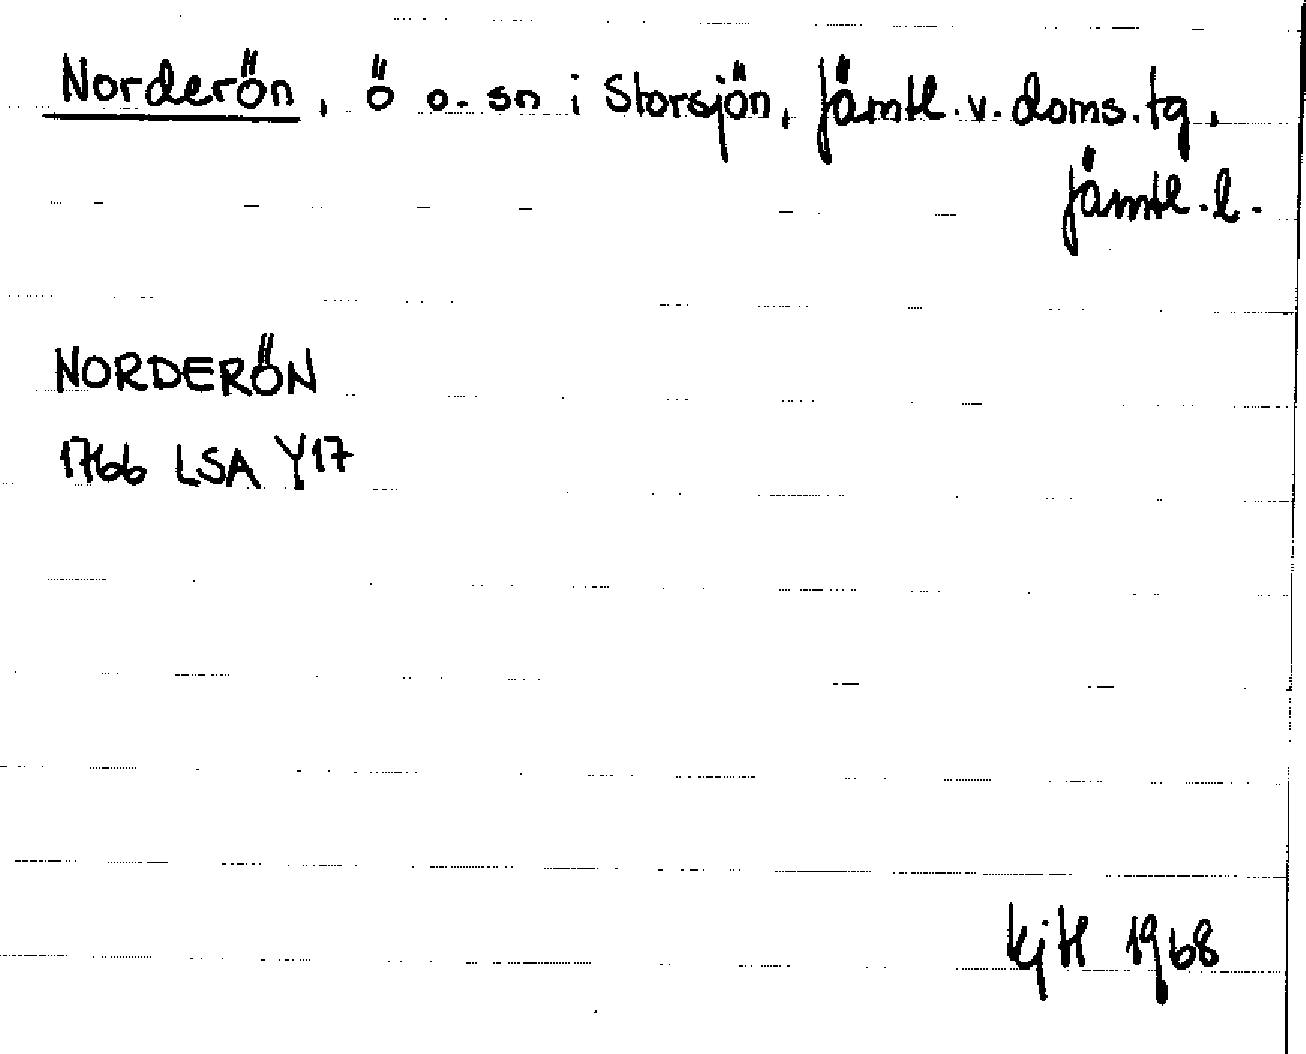 Norderön, ö o. sn i Storsjön, Jämtl. v. doms. tg,
Jämtl. l.
NORDERÖN
1766 LSA Y17
kjH 1968